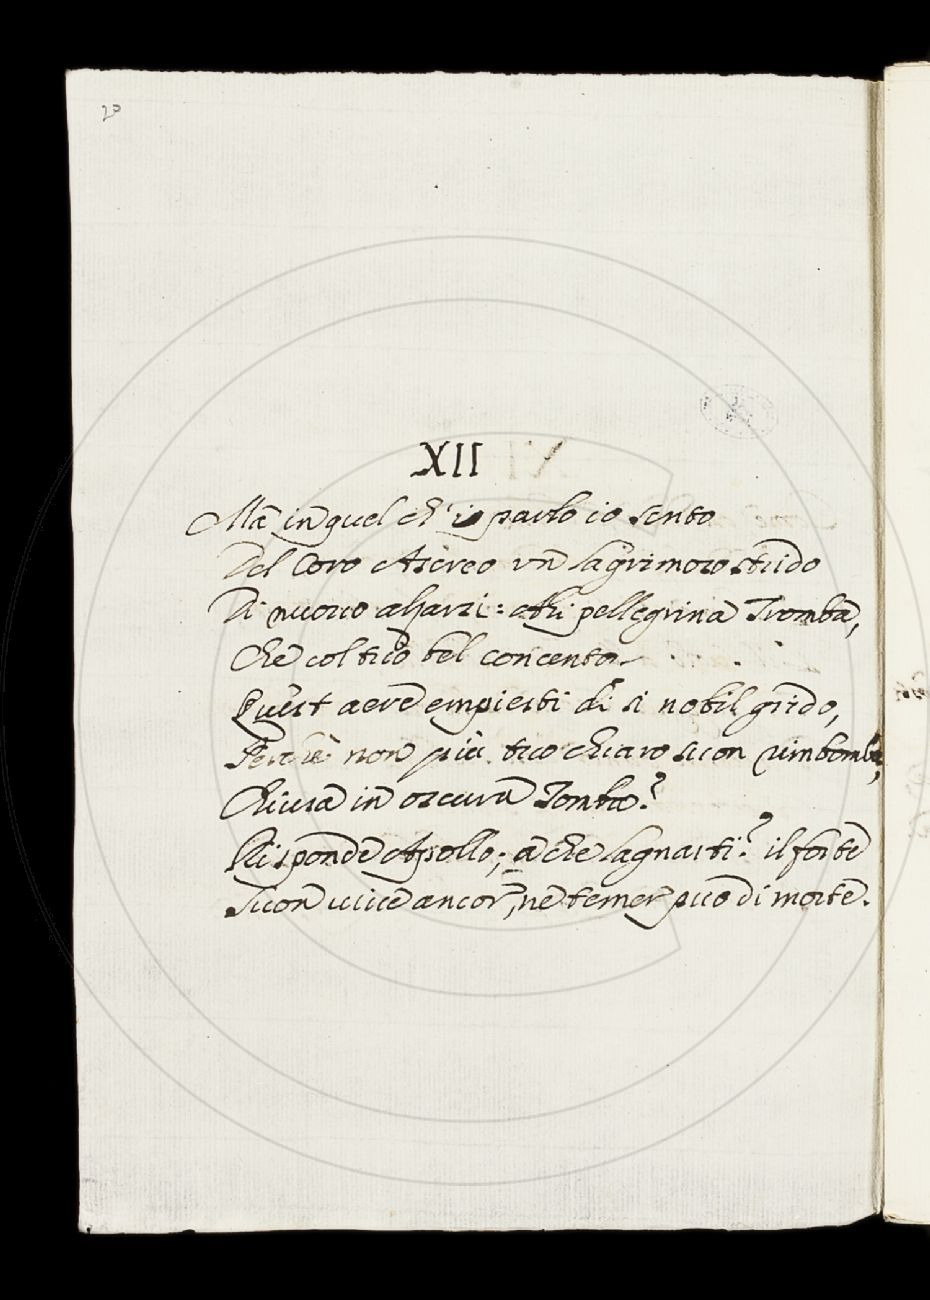 20
XII
Ma in quel ch'io parlo io sento
Del Coro Ascreo un lagrimoso strido
Di nuovo alzarsi: ahi pellegrina Tromba,
Che col tuo bel concento
Quest aere empiesti di si nobil grido,
Perche non più tuo chiaro suon rimbomba,
Chiusa in oscura Tomba?
Risponde Apollo; a che lagnarti? il forte
Suon vive ancor, ne temer può di morte.